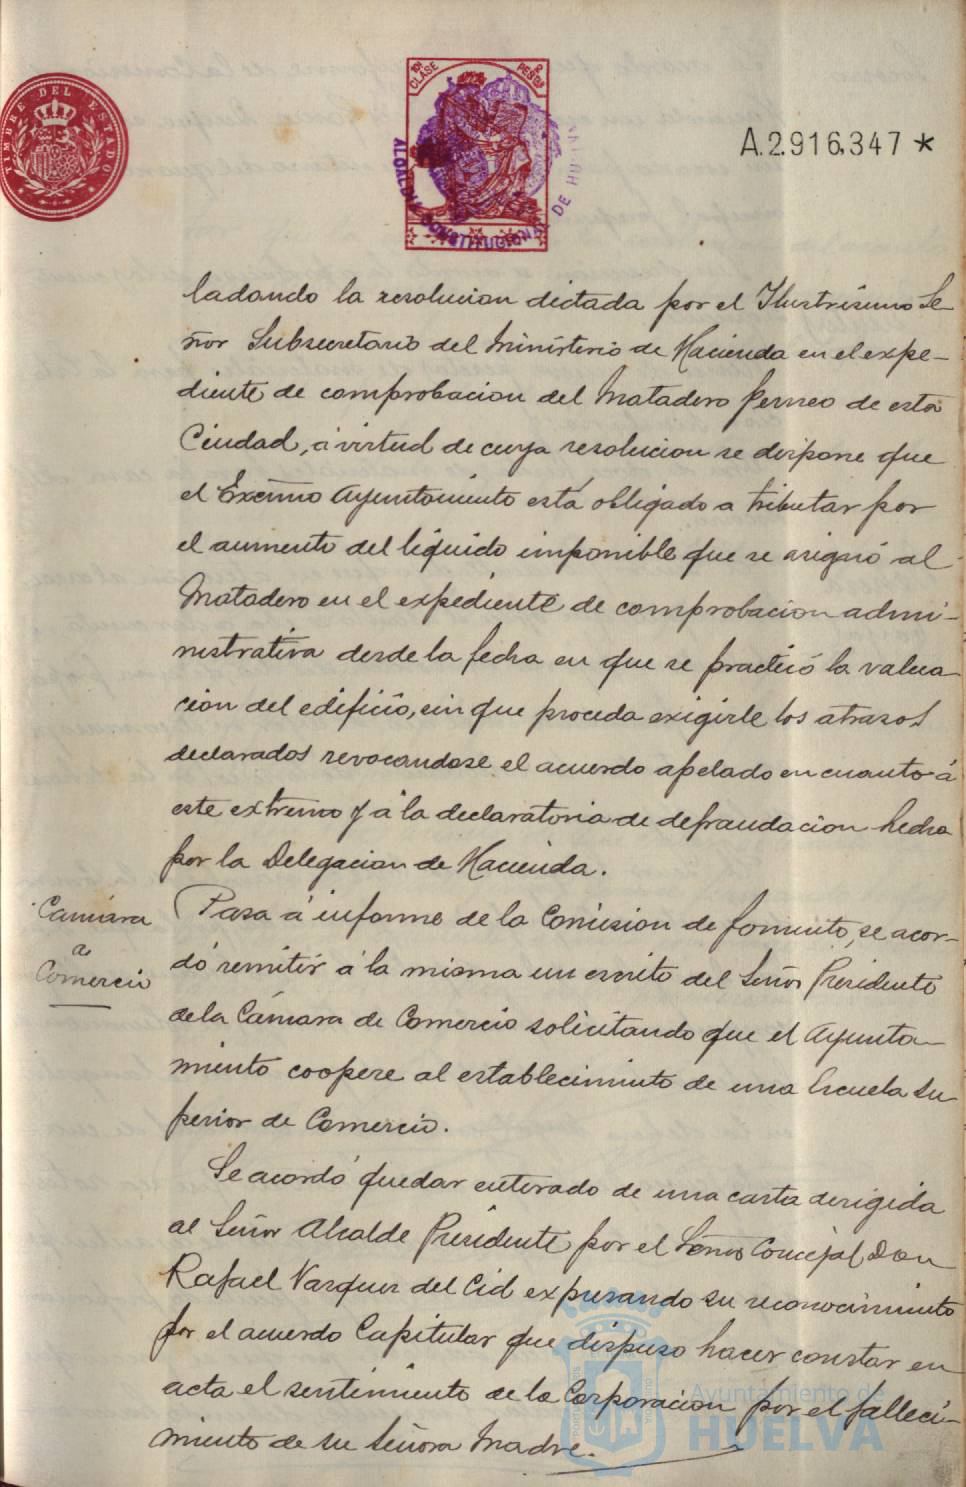 TIMBRE DEL ESTADO
10ª CLASE
2 PESETAS
ALCALDIA CONSTITUCIONAL DE HUELVA
A.2.916,347 *
ladando la resolucion dictada por el Ilustrisimo Se-
ñor Subsecretario del Ministerio de Hacienda en el expe-
diente de comprobacion del Matadero perneo de esta
Ciudad, á virtud de cuya resolucion se dispone que
el Excmo Ayuntamiento está obligado a tributar por
el aumento del liquido imponible que se asignó al
Matadero en el expediente de comprobacion admi-
nistrativa desde la fecha en que se practicó la valua-
cion del edificio, sin que proceda exigirle los atrasos
declarados revocandose el acuerdo apelado en cuanto á
este extremo y á la declaratoria de defraudacion hecha
por la Delegacion de Hacienda.
Camara
de
Comercio
Pasa á informe de la Comision de fomento, se acor-
dó remitir á la misma un escrito del Señor Presidente
de la Cámara de Comercio solicitando que el Ayunta-
miento coopere al establecimiento de una Escuela Su-
perior de Comercio.
Se acordó quedar enterado de una carta dirigida
al Señor Alcalde Presidente por el Señor Concejal Don
Rafael Vazquez del Cid expresando su reconocimiento
por el acuerdo Capitular que dispuso hacer constar en
acta el sentimiento de la Corporacion por el falleci-
miento de su Señora Madre.
Ayuntamiento de
HUELVA